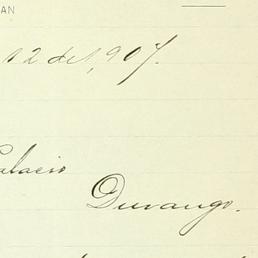 AN
12 de 1,907.
Palacio
Durango.